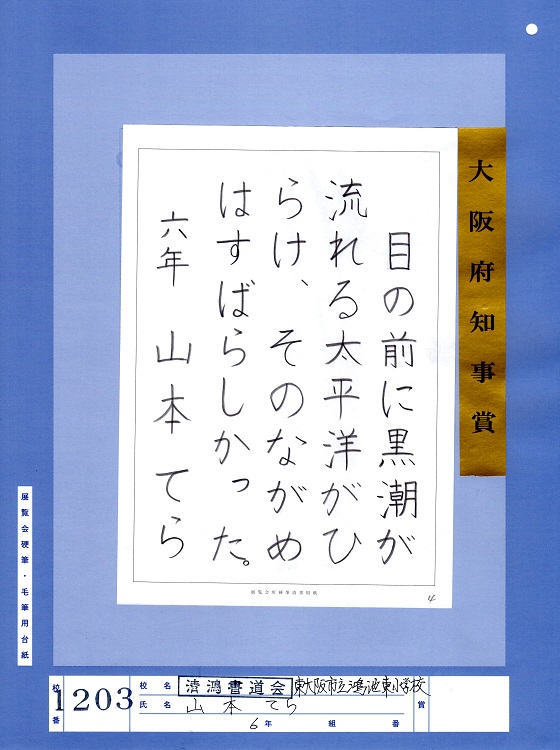 大阪府知事賞
目の前に黒潮が
流れる太平洋がひ
らけ、そのながめ
はすばらしかった。
六年 山本てら
展覧会硬筆清書用紙
4
展覧会硬筆・毛筆用台紙
校番 1203
校名 濤鴻書道会 東大阪市立鴻池東小学校
氏名 山本てら
6年 組 番
賞